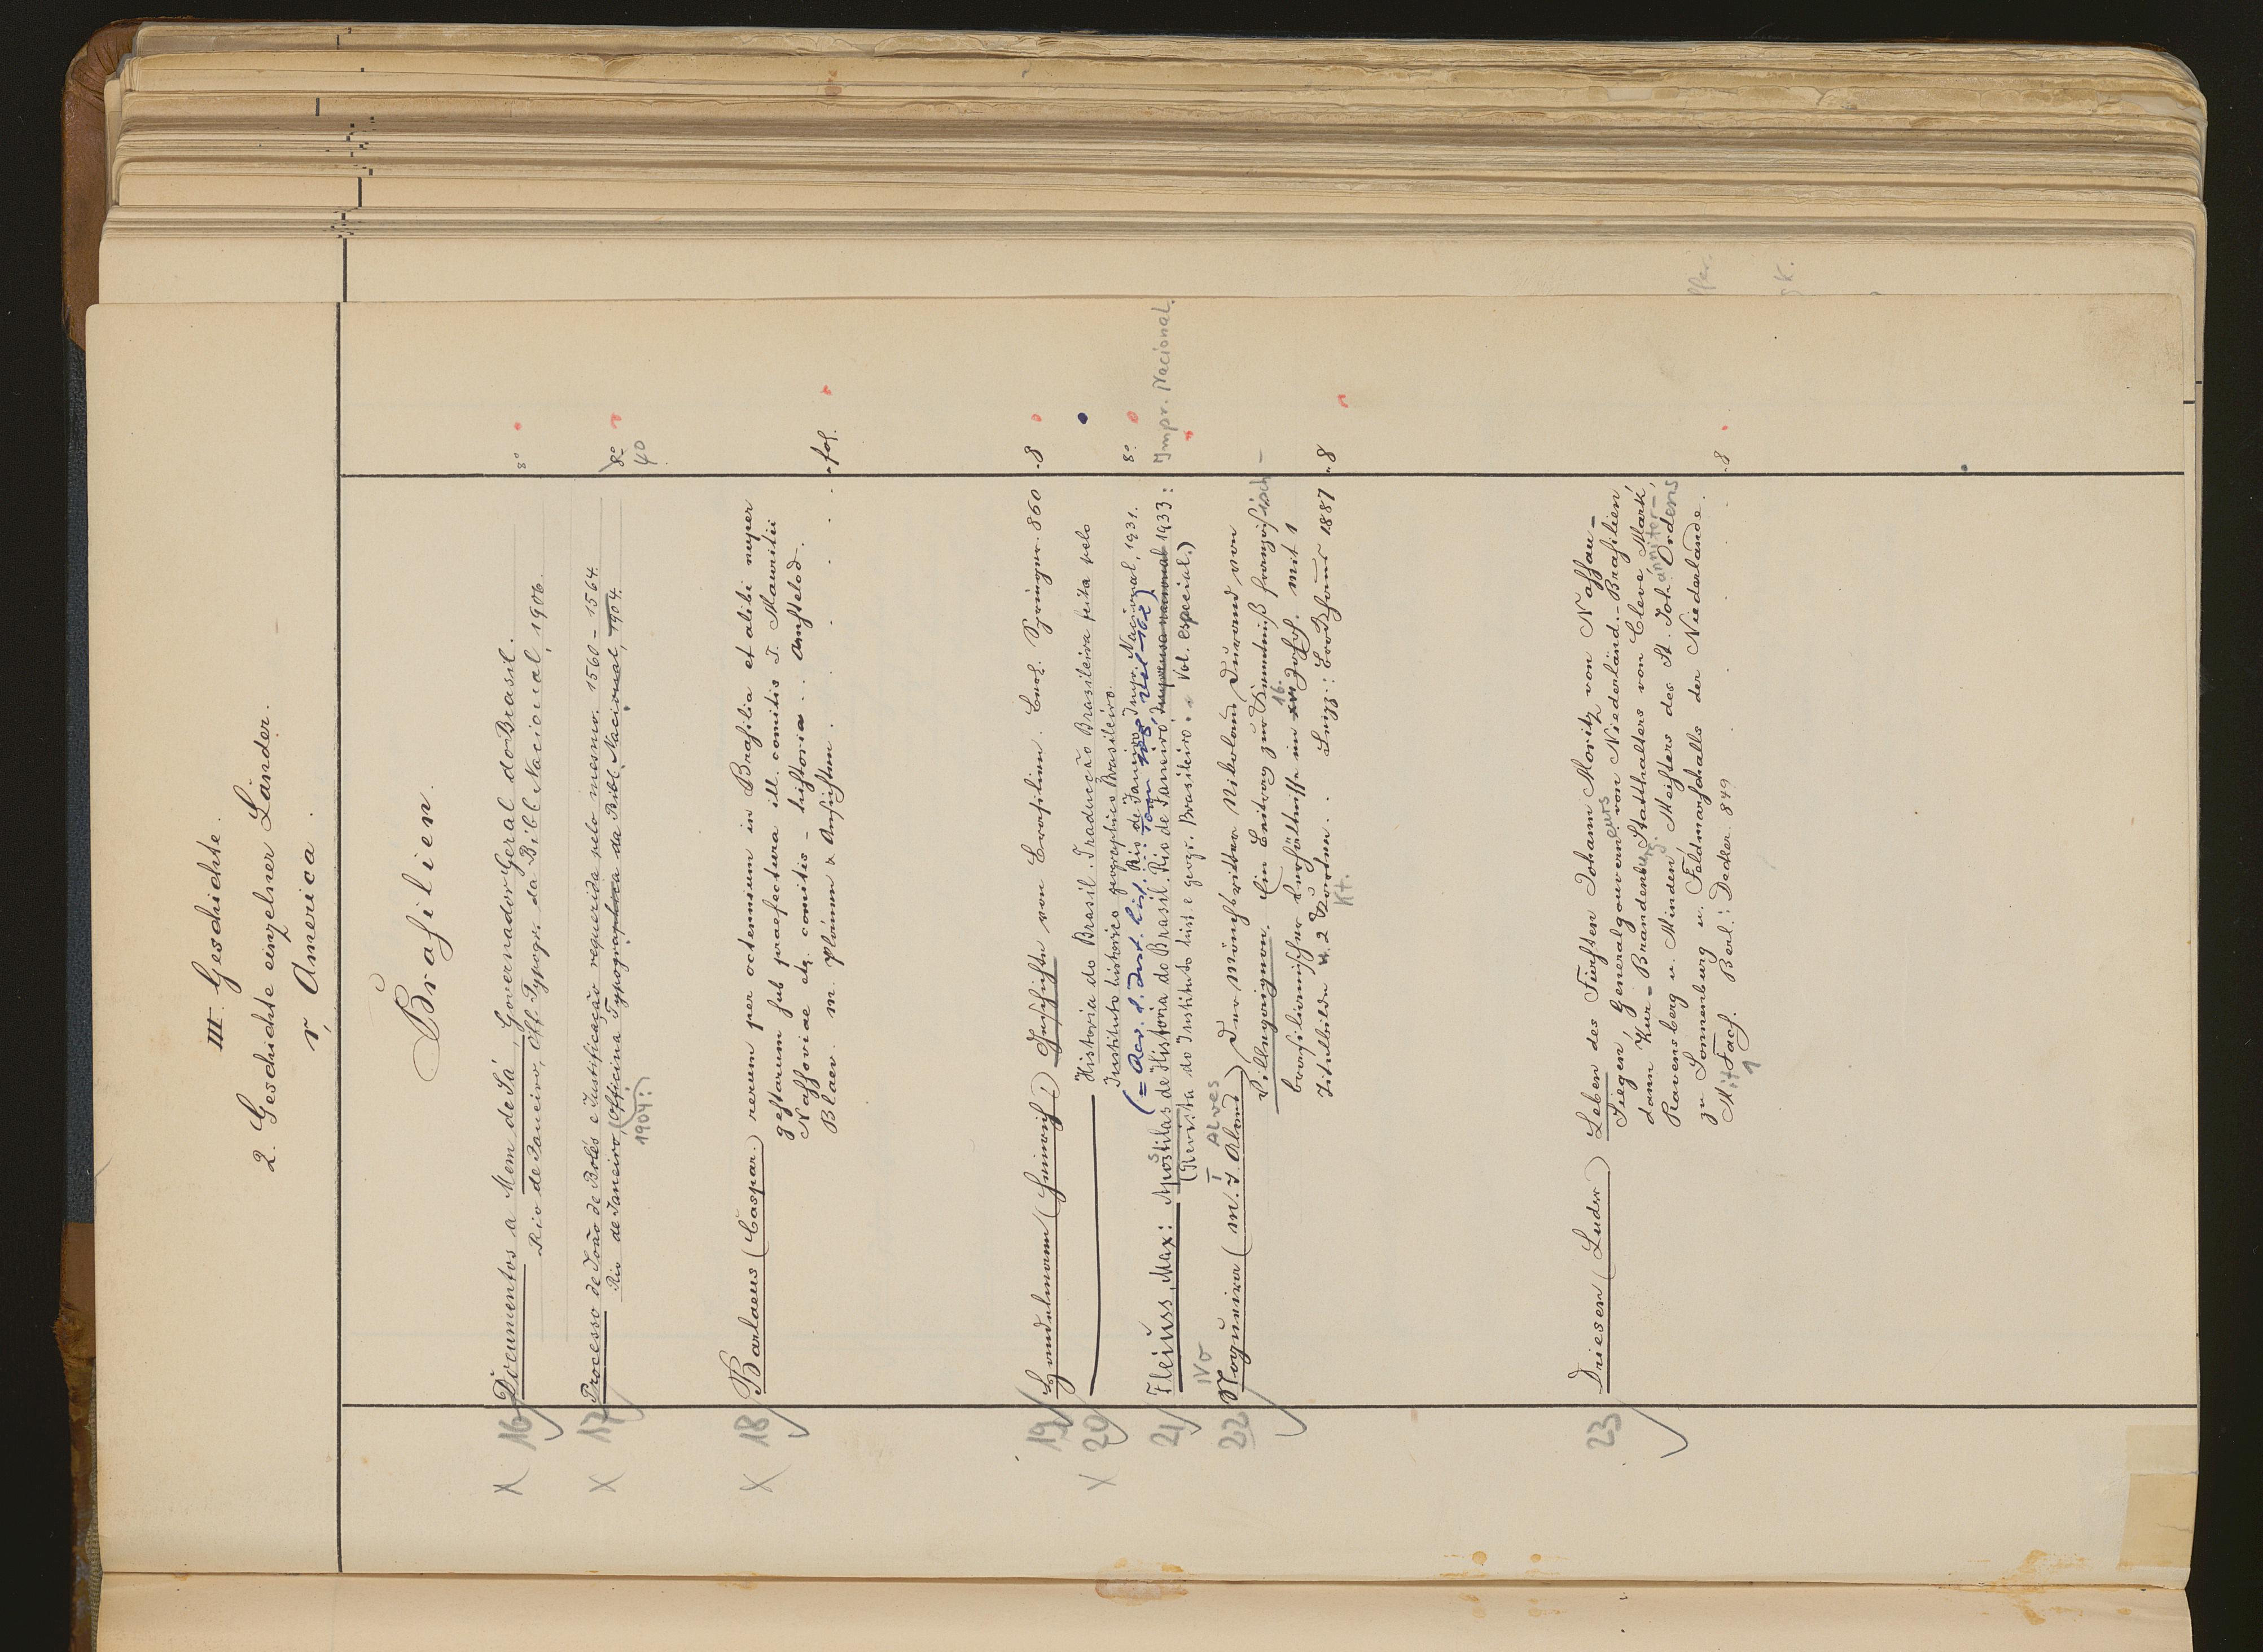 III. Geschichte.
2. Geschichte einzelner Länder.
r, America.
Brasilien.
X 16 Documentos a Mem de Sá, Governador Geral do Brasil.
Rio de Janeiro, Off. Typogr. da Bibl. Nacional, 1906. 8°
X 17 Processo de João de Bolés e Justificação requerida pelo mesmo. 1560-1564.
Rio de Janeiro, (Officina Typographica da Bibl. Nacional, 1904. 8°
1904:) 40
X 18 Barlaeus (Caspar.) rerum per octennium in Brasilia et alibi nuper
gestarum sub praefectura ill. comitis I. Mauritii
Nassoviae etc. comitis - historia .. Amstelod.
Blaev. m. Plänen & Ansichten. fol.
19 Handelmann (Heinrich) Geschichte von Brasilien. Berl. Springer. 860 8
X 20 Historia do Brasil. Traducção Brasileira feita pelo
Instituto historico geographico Brasileiro.
Rio de Janeiro, Impr. Nacional, 1931. 8°
21 Fleiuss, Max: Apostilas de Historia do Brasil. Rio de Janeiro: Imprensa nacional 1933: Impr. Nacional.
s
(Revista do Instituto hist. e geogr. Brasileiro: Vol. especial.)
Ivo I ALves
22 Nogueira (M. T. Alves) Der Mönchsritter Nikolaus Durand von
Villegaignon. Ein Beitrag zur Kenntniß französisch-
brasilianischer Verhältnisse im XVI Jahrh. mit 1
16.
Titelbilde u. 2 Karten. Leipz.: Brockhaus 1887 8
Kt.
23 Driesen (Ludw) Leben des Fürsten Johann Moritz von Nassau-
Siegen, Generalgouverneurs von Niederländ.-Brasilien,
dann Kur-Brandenburg. Statthalters von Cleve, Mark,
Ravensberg u. Minden, Meisters des St. Johanniter-Ordens
zu Sonnenburg u. Feldmarschalls der Niederlande.
Mit 1 Facs. Berl.: Decker. 849 8